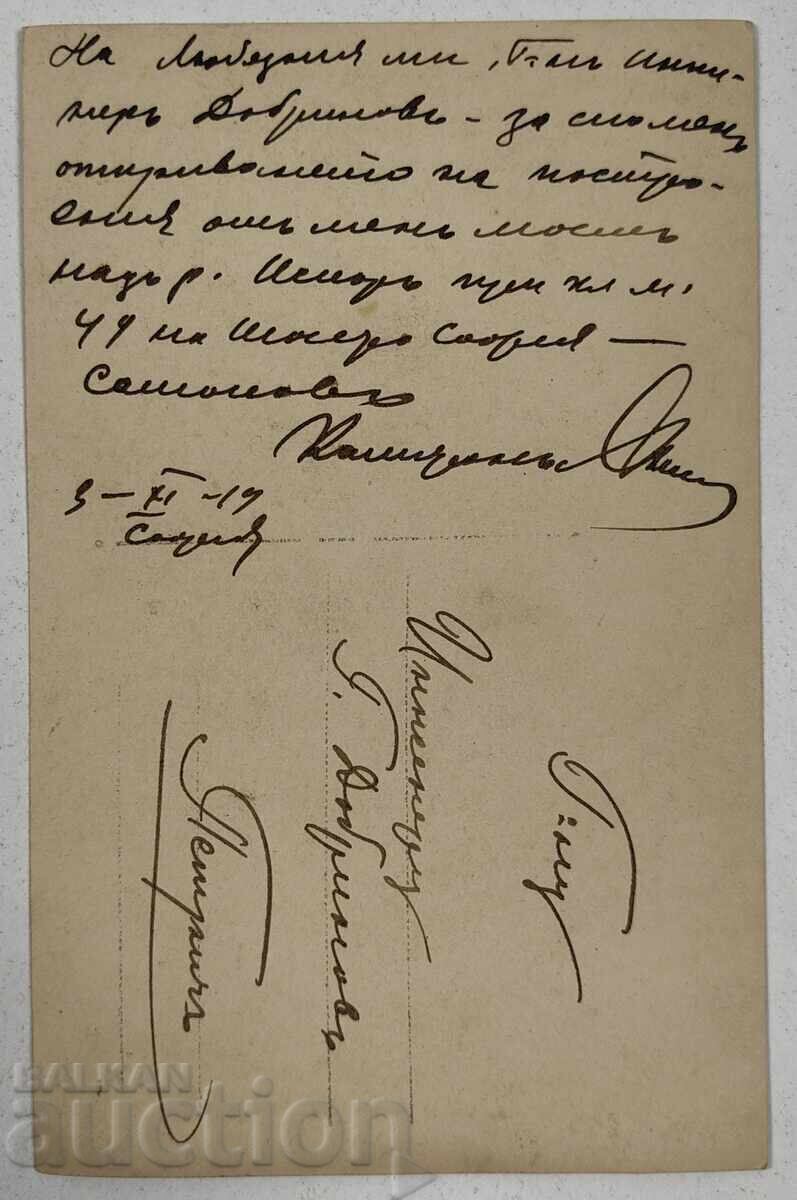 На Любезния ми, Г-нъ Инжи-
неръ Добриновъ - за споменъ
откриването на постро-
ения отъ менъ мостъ
надъ р. Искъръ при кл. м.
49 на шосето София —
Самоковъ
9 - XI - 19
София
Г-ну
Инженеръ
Г. Добриновъ
Петричъ
BALKAN
auction